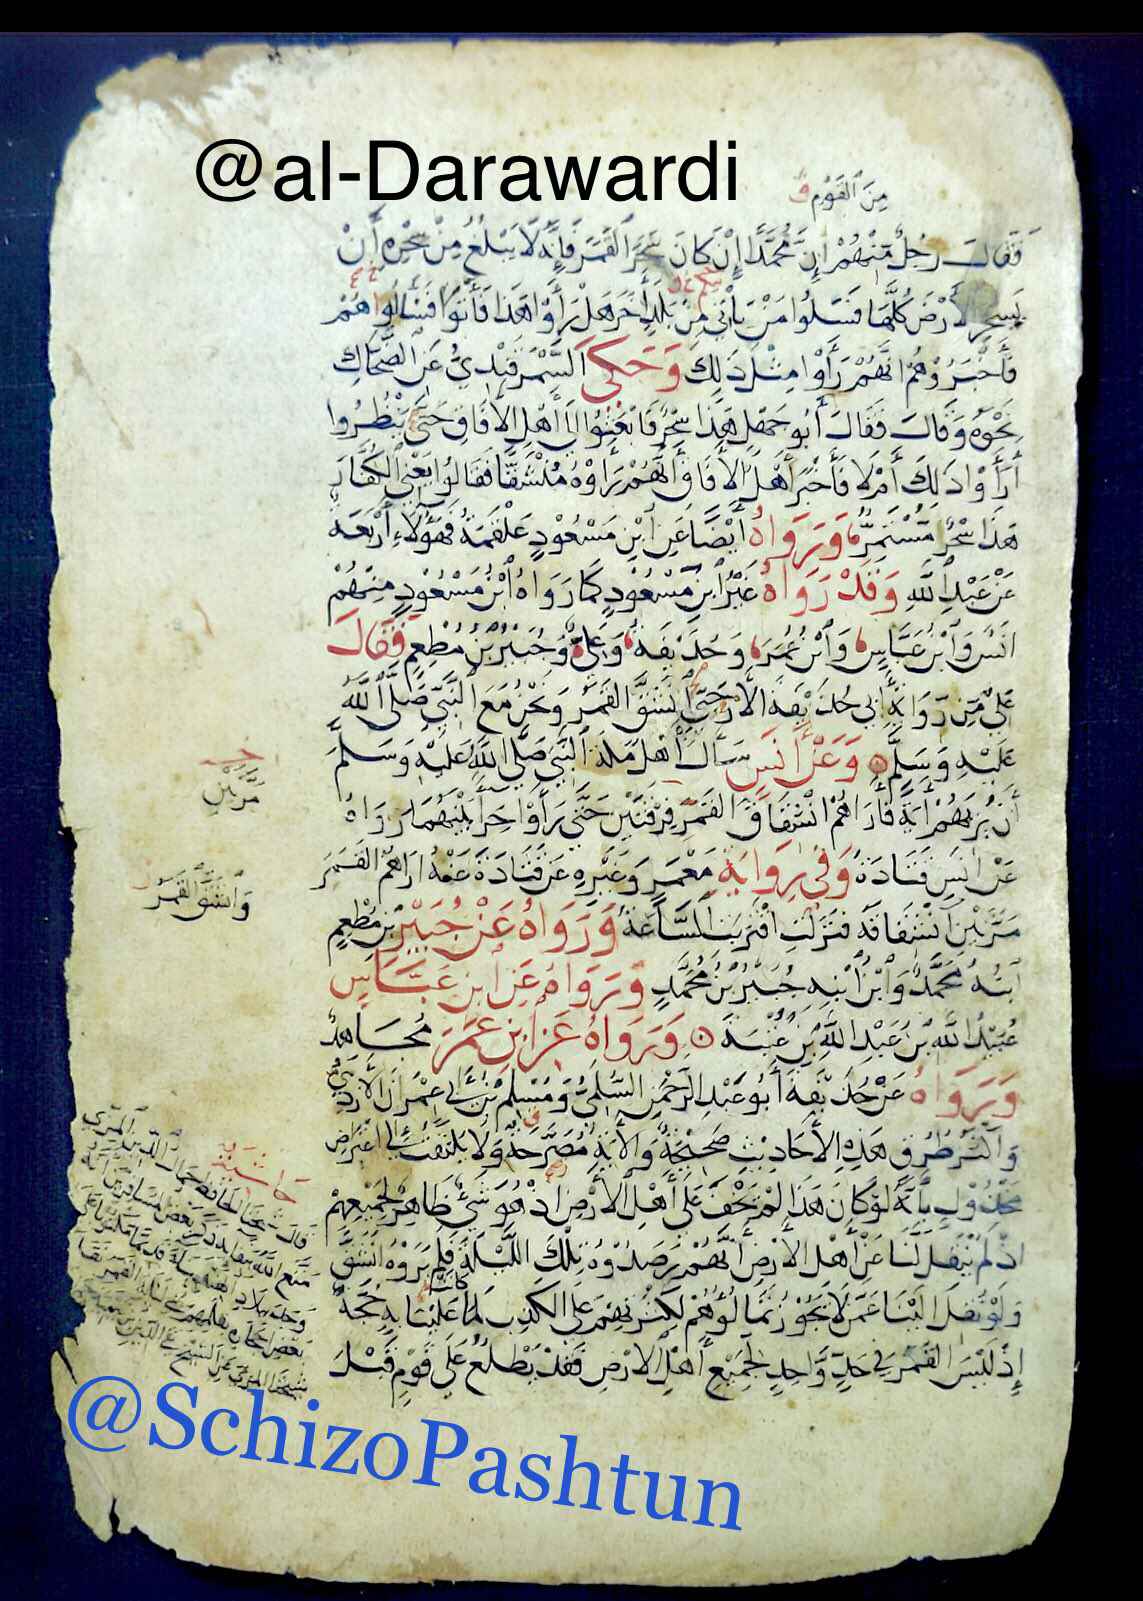 @al-Darawardi
مِنَ الْقَوْمِ
فَقَالَ رَجُلٌ مِنْهُمْ إِنَّ مُحَمَّدًا إِنْ كَانَ سَحَرَ الْقَمَرَ فَإِنَّهُ لَا يَبْلُغُ مِنْ سِحْرِهِ أَنْ
يَسْحَرَ الْأَرْضَ كُلَّهَا فَسَلُوا مَنْ يَأْتِي مِنْ بَلَدٍ آخَرَ هَلْ رَأَوْا هَذَا فَأَتَوْا فَسَأَلُوا هُمْ
فَأَخْبَرُوهُمْ أَنَّهُمْ رَأَوْا مِثْلَ ذَلِكَ وَحَكَى السَّمَرْقَنْدِيُّ عَنِ الضَّحَّاكِ
نَحْوَهُ وَقَالَ فَقَالَ أَبُو جَهْلٍ هَذَا سِحْرٌ فَابْعَثُوا إِلَى أَهْلِ الْآفَاقِ حَتَّى يَنْظُرُوا
أَرَأَوْا ذَلِكَ أَمْ لَا فَأَخْبَرَ أَهْلُ الْآفَاقِ أَنَّهُمْ رَأَوْهُ مُنْشَقًّا فَقَالُوا يَعْنِي الْكُفَّارَ
هَذَا سِحْرٌ مُسْتَمِرٌّ وَرَوَاهُ أَيْضًا عَنِ ابْنِ مَسْعُودٍ عَلْقَمَةُ فَهَؤُلَاءِ أَرْبَعَةٌ
عَنْ عَبْدِ اللَّهِ وَقَدْ رَوَاهُ غَيْرُ ابْنِ مَسْعُودٍ كَمَا رَوَاهُ ابْنُ مَسْعُودٍ مِنْهُمْ
أَنَسٌ وَابْنُ عَبَّاسٍ وَابْنُ عُمَرَ وَحُذَيْفَةُ وَعَلِيٌّ وَجُبَيْرُ بْنُ مُطْعِمٍ فَقَالَ
عَلِيٌّ مِنْ رِوَايَةِ أَبِي حُذَيْفَةَ الْأَرْحَبِيِّ انْشَقَّ الْقَمَرُ وَنَحْنُ مَعَ النَّبِيِّ صَلَّى اللَّهُ
عَلَيْهِ وَسَلَّمَ وَعَنْ أَنَسٍ سَأَلَ أَهْلُ مَكَّةَ النَّبِيَّ صَلَّى اللَّهُ عَلَيْهِ وَسَلَّمَ
أَنْ يُرِيَهُمْ آيَةً فَأَرَاهُمْ انْشِقَاقَ الْقَمَرِ فِرْقَتَيْنِ حَتَّى رَأَوْا حِرَاءَ بَيْنَهُمَا رَوَاهُ
عَنْ أَنَسٍ قَتَادَةُ وَفِي رِوَايَةِ مَعْمَرٍ وَغَيْرِهِ عَنْ قَتَادَةَ عَنْهُ أَرَاهُمُ الْقَمَرَ
مَرَّتَيْنِ انْشِقَاقَهُ فَنَزَلَتِ اقْتَرَبَتِ السَّاعَةُ وَرَوَاهُ عَنْ جُبَيْرِ بْنِ مُطْعِمٍ
ابْنُهُ مُحَمَّدٌ وَابْنُ ابْنِهِ جُبَيْرُ بْنُ مُحَمَّدٍ وَرَوَاهُ عَنِ ابْنِ عَبَّاسٍ
عُبَيْدُ اللَّهِ بْنُ عَبْدِ اللَّهِ بْنِ عُتْبَةَ وَرَوَاهُ عَنِ ابْنِ عُمَرَ مُجَاهِدٌ
وَرَوَاهُ عَنْ حُذَيْفَةَ أَبُو عَبْدِ الرَّحْمَنِ السُّلَمِيُّ وَمُسْلِمُ بْنُ أَبِي عِمْرَانَ الْأَزْدِيُّ
وَأَكْثَرُ طُرُقِ هَذِهِ الْأَحَادِيثِ صَحِيحَةٌ وَالْآيَةُ مُصَرِّحَةٌ وَلَا يُلْتَفَتُ إِلَى اعْتِرَاضِ
مَخْذُولٍ بِأَنَّهُ لَوْ كَانَ هَذَا لَمْ يَخْفَ عَلَى أَهْلِ الْأَرْضِ إِذْ هُوَ شَيْءٌ ظَاهِرٌ لِجَمِيعِهِمْ
إِذْ لَمْ يُنْقَلْ لَنَا عَنْ أَهْلِ الْأَرْضِ أَنَّهُمْ رَصَدُوهُ تِلْكَ اللَّيْلَةَ فَلَمْ يَرَوْهُ انْشَقَّ
وَلَوْ نُقِلَ إِلَيْنَا عَمَّنْ لَا يَجُوزُ تَمَالُؤُهُمْ لِكَثْرَتِهِمْ عَلَى الْكَذِبِ لَمَا كَانَتْ عَلَيْنَا بِهِ حُجَّةٌ
إِذْ لَيْسَ الْقَمَرُ فِي حَدٍّ وَاحِدٍ لِجَمِيعِ أَهْلِ الْأَرْضِ فَقَدْ يَطْلُعُ عَلَى قَوْمٍ قَبْلَ
مَرَّتَيْنِ
وَانْشَقَّ الْقَمَرُ
حاشية
قال شيخنا الحافظ جمال الدين المزي
@SchizoPashtun